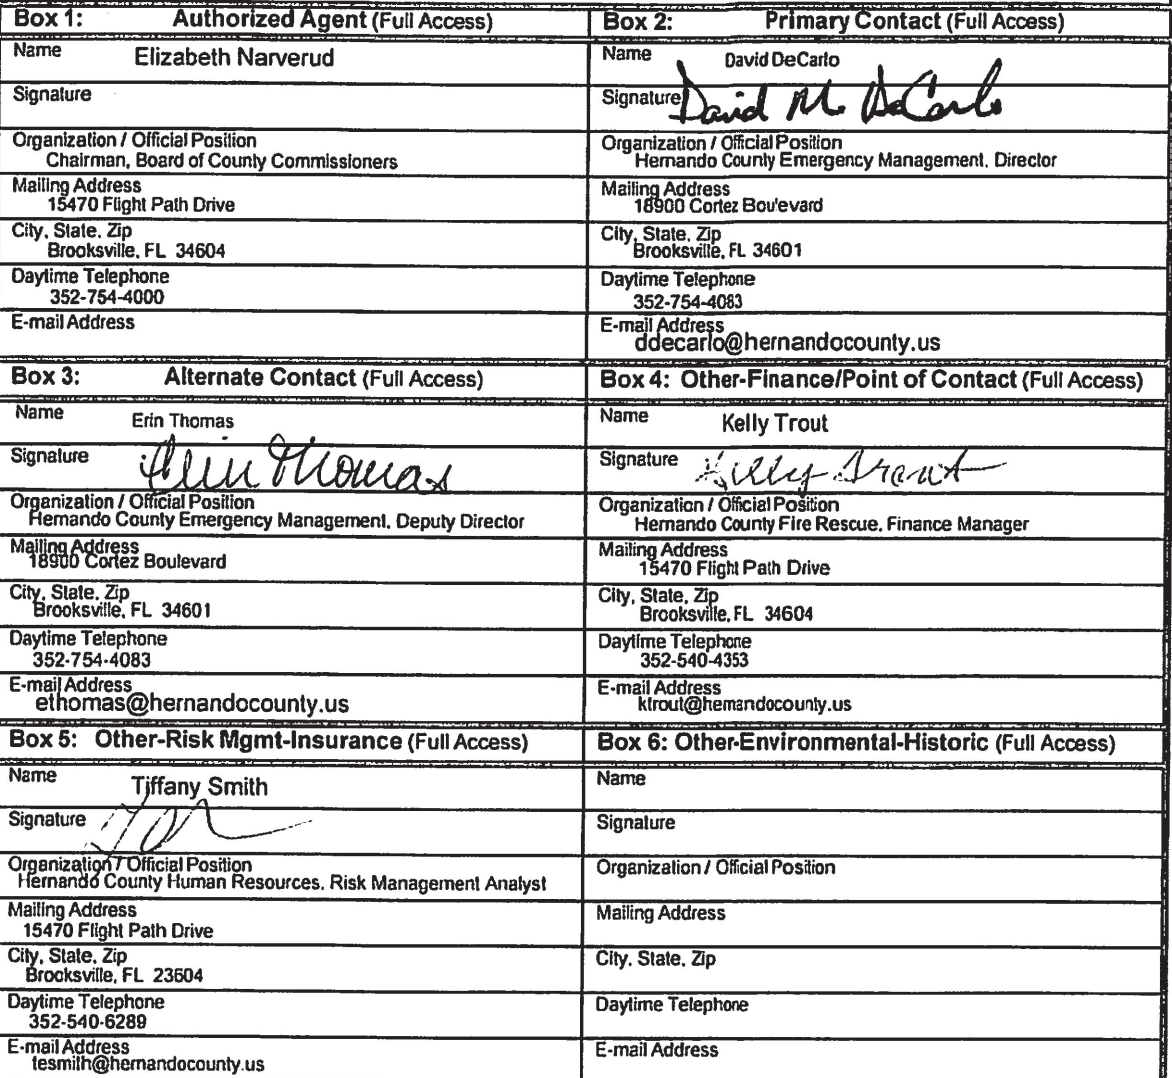 Box 1: Authorized Agent (Full Access)
Name Elizabeth Narverud
Signature
Organization / Official Position
Chairman, Board of County Commissioners
Mailing Address
15470 Flight Path Drive
City, State, Zip
Brooksville, FL 34604
Daytime Telephone
352-754-4000
E-mail Address
Box 2: Primary Contact (Full Access)
Name David DeCarlo
Signature David M DeCarlo
Organization / Official Position
Hernando County Emergency Management, Director
Mailing Address
18900 Cortez Boulevard
City, State, Zip
Brooksville, FL 34601
Daytime Telephone
352-754-4083
E-mail Address
ddecarlo@hernandocounty.us
Box 3: Alternate Contact (Full Access)
Name Erin Thomas
Signature Erin Thomas
Organization / Official Position
Hernando County Emergency Management, Deputy Director
Mailing Address
18900 Cortez Boulevard
City, State, Zip
Brooksville, FL 34601
Daytime Telephone
352-754-4083
E-mail Address
ethomas@hernandocounty.us
Box 4: Other-Finance/Point of Contact (Full Access)
Name Kelly Trout
Signature Kelly Trout
Organization / Official Position
Hernando County Fire Rescue, Finance Manager
Mailing Address
15470 Flight Path Drive
City, State, Zip
Brooksville, FL 34604
Daytime Telephone
352-540-4353
E-mail Address
ktrout@hernandocounty.us
Box 5: Other-Risk Mgmt-Insurance (Full Access)
Name Tiffany Smith
Signature
Organization / Official Position
Hernando County Human Resources, Risk Management Analyst
Mailing Address
15470 Flight Path Drive
City, State, Zip
Brooksville, FL 23604
Daytime Telephone
352-540-6289
E-mail Address
tesmith@hernandocounty.us
Box 6: Other-Environmental-Historic (Full Access)
Name
Signature
Organization / Official Position
Mailing Address
City, State, Zip
Daytime Telephone
E-mail Address